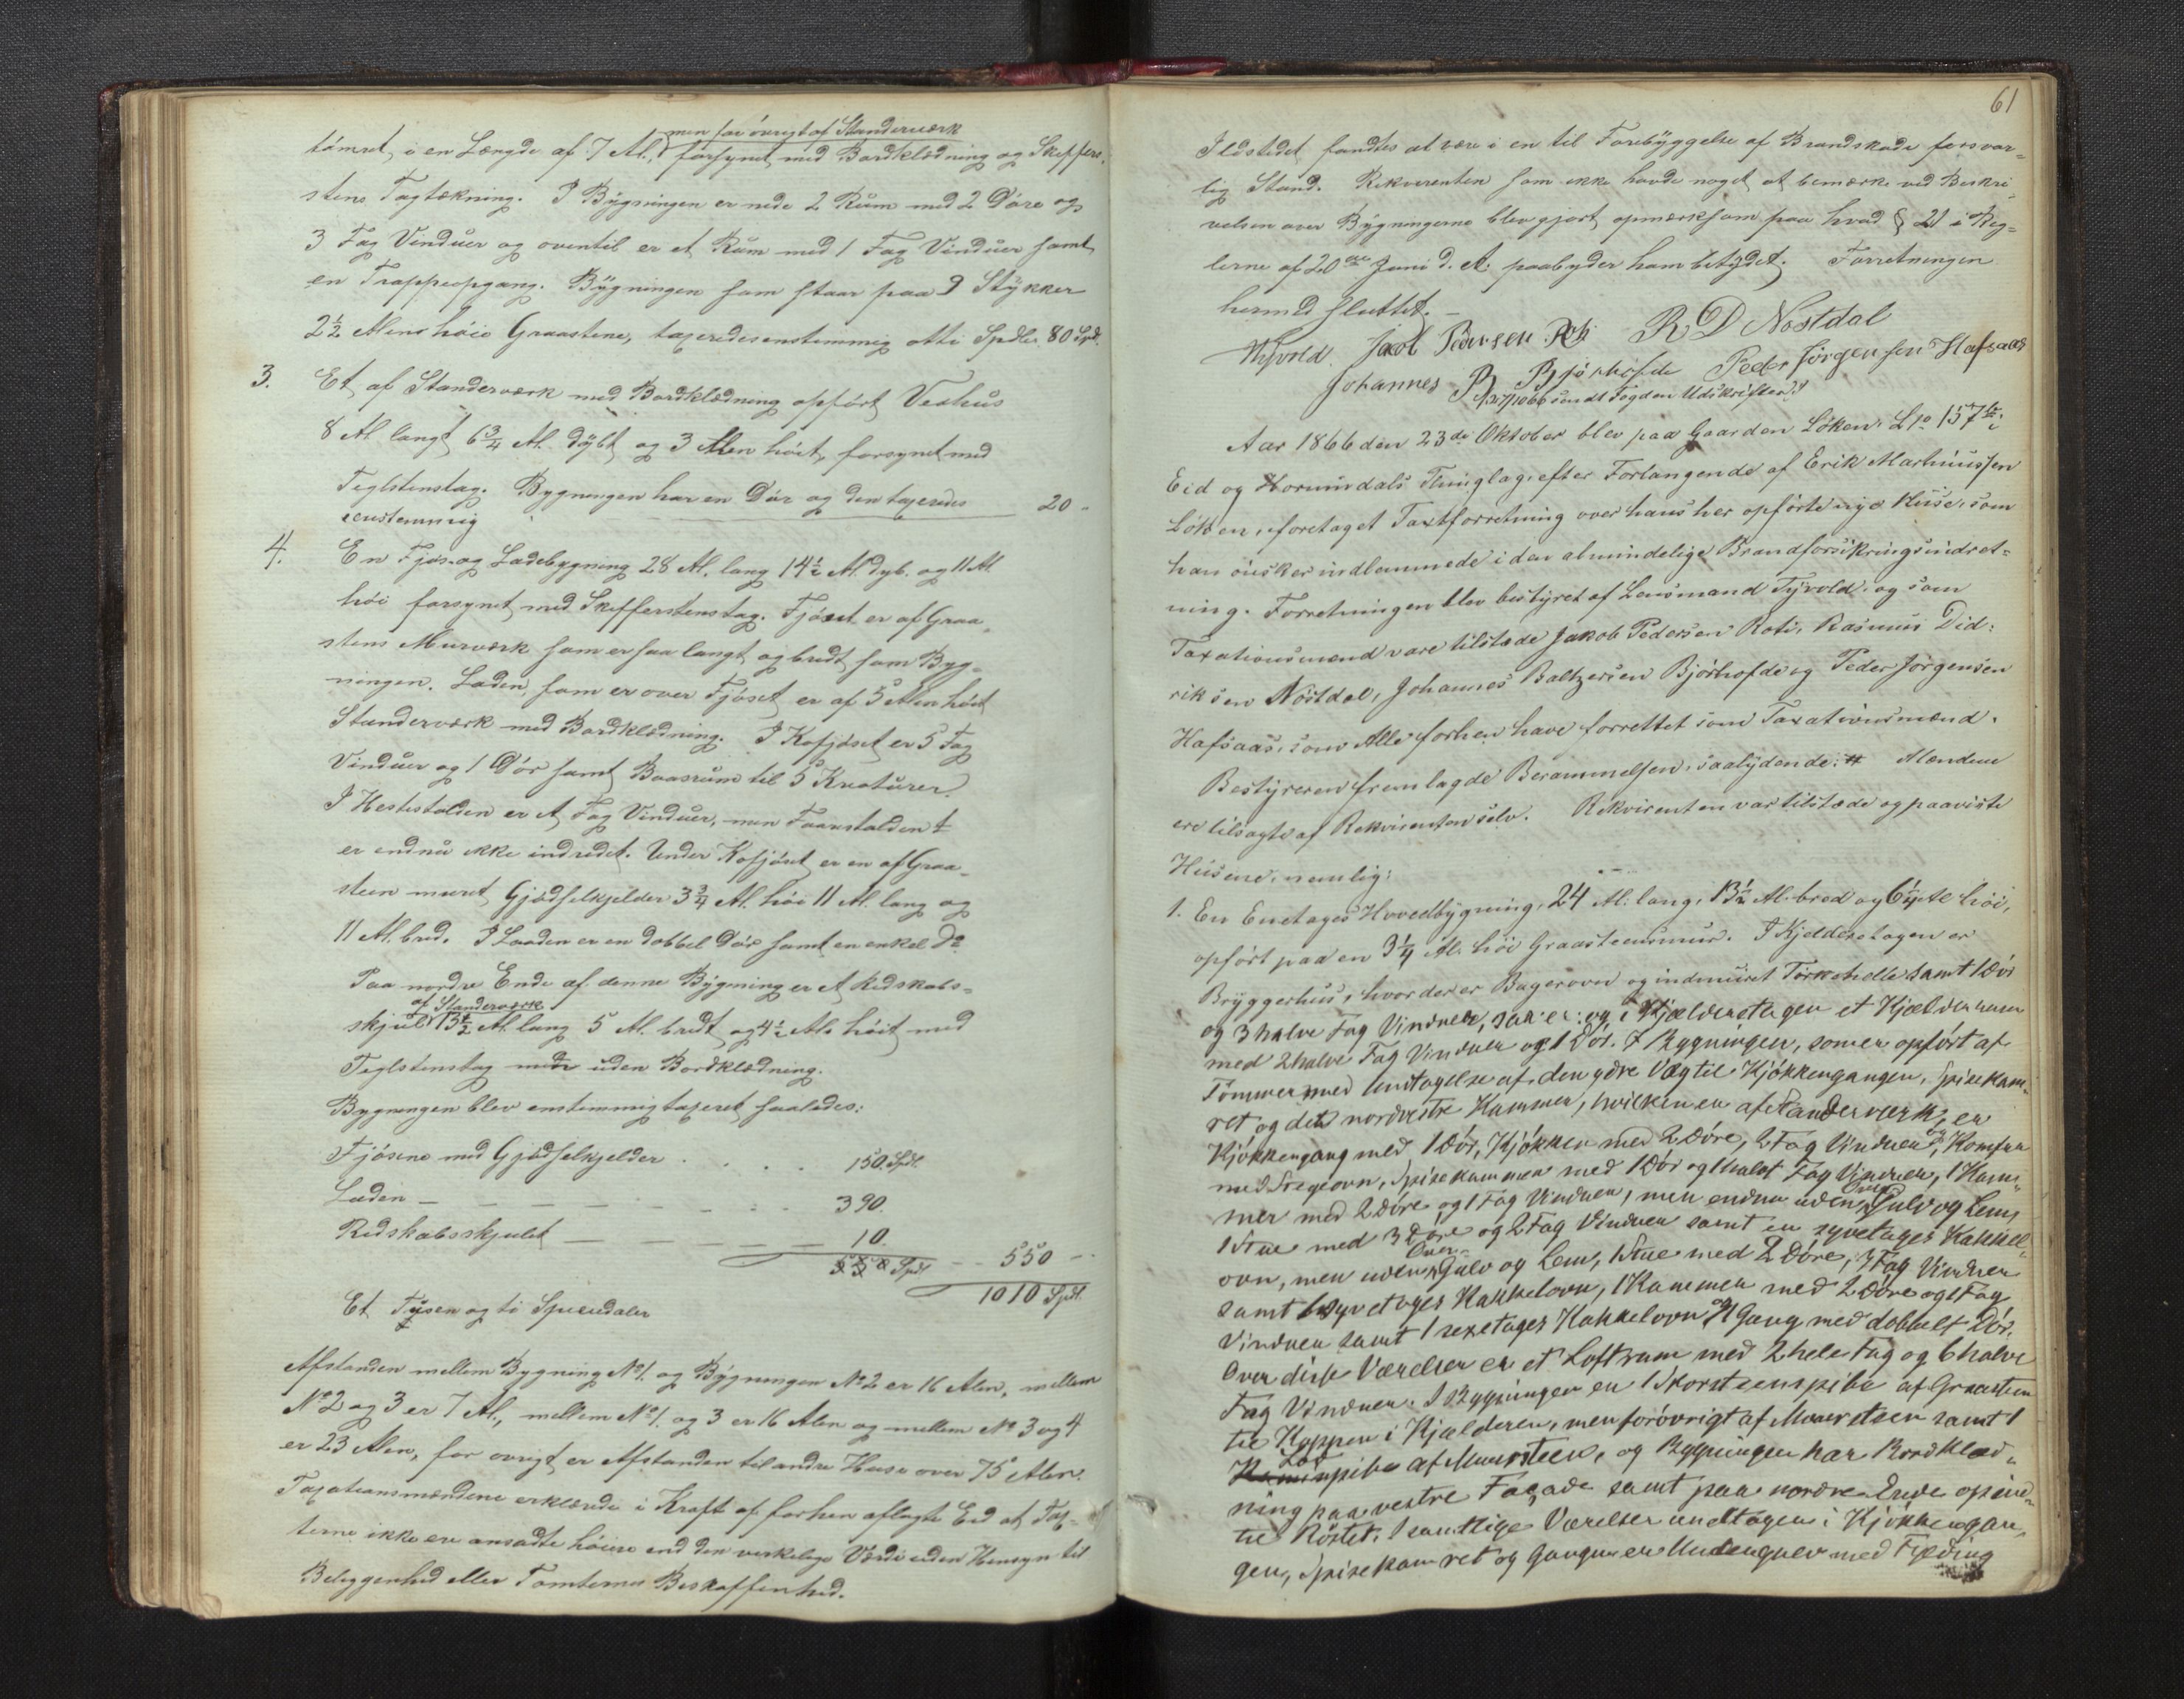 tømret i en Længde af 7 Al., men for øvrigt af Standerværk
forsynet med Bordklædning og Skiffer-
stens Tagtækning. I Bygningen er nede 2 Rum med 2 Døre og
3 Fag Vinduer og oventil er et Rum med 1 Fag Vinduer samt
en Trappeopgang. Bygningen som staar paa 9 Stykker
2½ Alens høie Graastene, taxeredes enstemmig otti Spdlr. 80 Spd.
3. Et af Standerværk med Bordklædning opført Vedhus
8 Al. langt 6¾ Al. dybt og 3 Alen høit, forsynet med
Teglstenstag. Bygningen har en Dør og den taxeredes
eenstemmig 20 -
4. En Fjøs- og Ladebygning 28 Al. lang 14½ Al. dyb. og 11 Al.
høi forsynet med Skifferstenstag. Fjøset er af Graa-
stens Murværk som er saa langt og bredt som Byg-
ningen. Laden, som er over Fjøset er af 5 Alen høit
Standerværk med Bordklædning. I Kofjøset er 5 Fag
Vinduer og 1 Dør samt Baasrum til 5 Kreaturer.
I Hestestalden er et Fag Vinduer, men Faarestalden
er endnu ikke indredet. Under Kofjøset er en af Graa-
steen muret Gjødselkjelder 3¾ Al. høi 11 Al. lang og
11 Al. bred. I Laaden er en dobbel Dør samt en enkel Do
Paa nordre Ende af denne Bygning er et Redskabs-
skjul af Standerværk 13½ Al. lang 5 Al. bredt og 4½ Al. høit med
Teglstenstag men uden Bordklædning.
Bygningen blev enstemmig taxeret saaledes:
Fjøsene med Gjødselkjelder . . . . 150 Spdl.
Laden — — — — — — 390.
Redskabsskjulet — — — — — 10.
550 Spd. — 550 —
1010 Spdl.
Et Tusen og ti Speciedaler
Afstanden mellem Bygning No 1. og Bygningen No 2 er 16 Alen, mellem
No 2 og 3 er 7 Al., mellem No 1. og 3 er 16 Alen og mellem No 3 og 4
er 23 Alen, for øvrigt er Afstanden til andre Huse over 75 Alen.
Taxationsmændene erklærede i Kraft af forhen aflagte Eed at Tax-
terne ikke ere ansadte høiere end den virkelige Værdi uden Hensyn til
Beliggenhed eller Tomternes Beskaffenhed.
61
Ildstedet fandtes at være i en til Forebyggelse af Brandskade forsvar-
lig Stand. Rekvirenten som ikke havde noget at bemærke ved Beskri-
velsen over Bygningerne blev gjort opmærksom paa hvad § 21 i Reg-
lerne af 20de Juni d. A. paabyder ham betydet. Forretningen
hermed sluttet. —
Thyvold. Jacob Pedersen Roti R D Nøstdal
Johannes B Bjørhofde Peder Jørgensen Hafsaas
sendt Fogden Udskrifter
Aar 1866 den 23de Oktober blev paa Gaarden Løken, Lno 157 i
Eid og Hornindals Thinglag, efter Forlangende af Erik Marthinussen
Løken, foretaget Taxtforretning over hans her opførte nye Huse, som
han ønsker indlemmede i den almindelige Brandforsikringsindret-
ning. Forretningen blev bestyret af Lensmand Tyvold, og som
Taxationsmænd vare tilstede Jakob Pedersen Roti, Rasmus Did-
riksen Nøstdal, Johannes Baltzersen Bjørhofde og Peder Jørgensen
Hafsaas, som Alle forhen have forrettet som Taxationsmænd.
Bestyreren fremlagde Berammelsen, saalydende: # Mændene
ere tilsagte af Rekvirenten selv. Rekvirenten var tilstæde og paaviste
Husene, nemlig:
1. En Enetages Hovedbygning, 24 Al. lang, 13½ Al. bred og 6¼ Al. høi,
opført paa en 3¼ Al. høi Graasteensmur. I Kjelderetagen er
Bryggerhus, hvor der er Bagerovn og indmuret Tørkehelle samt 1 Dør
og 3 halve Fag Vinduer, saa er og i Kjælderetagen et Kjælderrum
med 2 halve Fag Vinduer og 1 Dør. I Bygningen, som er opført af
Tømmer med Undtagelse af den ydre Væg til Kjøkkengangen, Spisekam-
ret og det nordvestre Kammer, hvilken er af Standerværk, er
Kjøkkengang med 1 Dør, Kjøkken med 2 Døre, 2 Fag Vinduer og Komfur
med Stegeovn, Spisekammer med 1 Dør og 1 halvt Fag Vinduer, 1 Kam-
mer med 2 Døre og 1 Fag Vinduer, men endnu uden Over Gulv og Lem,
1 Stue med 3 Døre og 2 Fag Vinduer samt en syvetages Kakkel-
ovn, men uden Over Gulv og Lem, 1 Stue med 2 Døre, 3 Fag Vinduer
samt 1 syvetages Kakkelovn, 1 Kammer med 2 Døre og 1 Fag
Vinduer samt 1 sexetages Kakkelovn og 1 Gang med dobbelt Dør.
Over disse Værelser er et Loftrum med 2 hele Fag og 6 halve
Fag Vinduer. I Bygningen er 1 Skorsteenspibe af Graasteen
til Toppen i Kjælderen, men forøvrigt af Muursteen samt 1
pibe af Muursteen, og Bygningen har Bordklæd-
ning paa vestre Façade samt paa nordre Ende op ind-
til Røstet. I samtlige Værelser undtagen i Kjøkkengan-
gen, Spisekamret og Gangen er Undengulv med Fylding